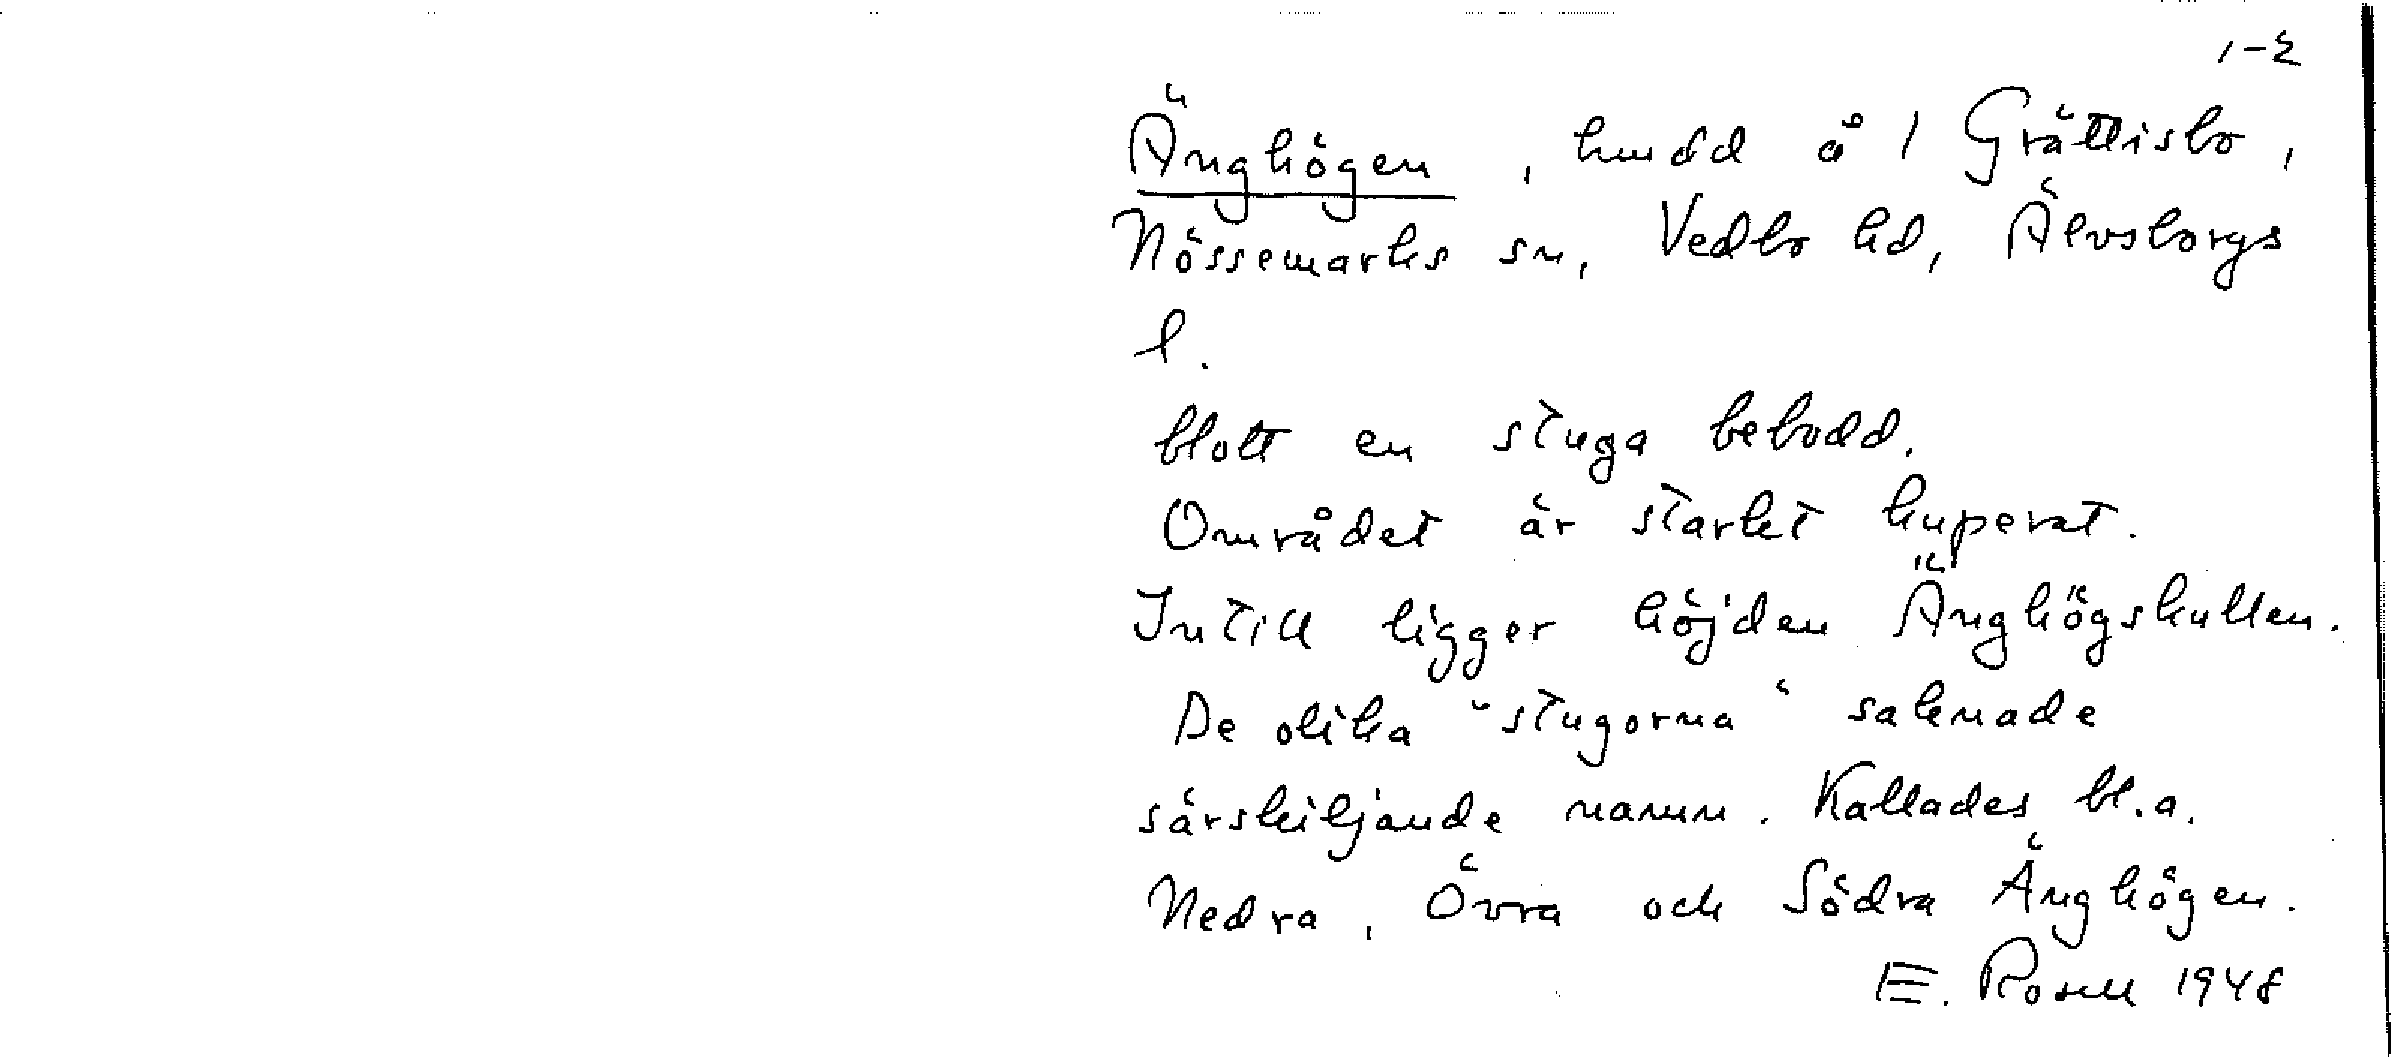 1-2
Änghögen, hmdd å 1 Grättisbo,
Nössemarks sn, Vedbo hd, Älvsborgs
l.
blott en stuga bebodd.
Området är starkt kuperat.
Intill ligger höjden Änghögskullen.
De olika "stugorna" saknade
särskiljande namn. Kallades bl.a.
Nedra, Övra och Södra Änghögen.
E. Rosell 1948